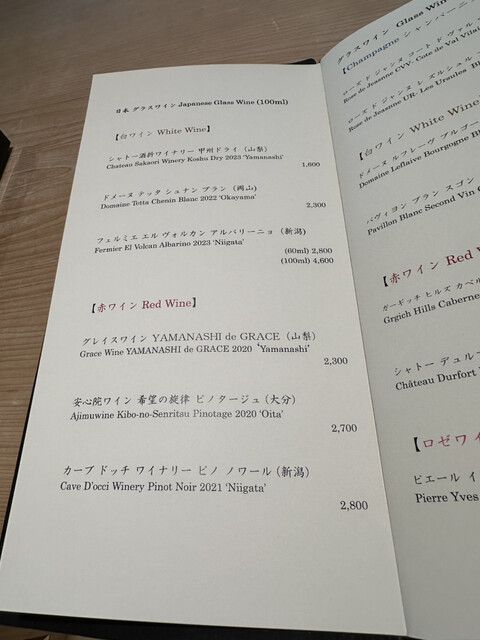 日本 グラスワイン Japanese Glass Wine (100ml)
【白ワイン White Wine】
シャトー酒折ワイナリー 甲州ドライ (山梨)
Chateau Sakaori Winery Koshu Dry 2023 'Yamanashi'
1,600
ドメーヌ テッタ シュナン ブラン (岡山)
Domaine Tetta Chenin Blanc 2022 'Okayama'
2,300
フェルミエ エル ヴォルカン アルバリーニョ (新潟)
Fermier El Volcan Albarino 2023 'Niigata'
(60ml) 2,800
(100ml) 4,600
【赤ワイン Red Wine】
グレイスワイン YAMANASHI de GRACE (山梨)
Grace Wine YAMANASHI de GRACE 2020 'Yamanashi'
2,300
安心院ワイン 希望の旋律 ピノタージュ (大分)
Ajimuwine Kibo-no-Senritsu Pinotage 2020 'Oita'
2,700
カーブ ドッチ ワイナリー ピノ ノワール (新潟)
Cave D'occi Winery Pinot Noir 2021 'Niigata'
2,800
グラスワイン Glass Wine
【Champagne シャンパーニ
ローズ ド ジャンヌ コート ド ヴァル
Rose de Jeanne CVV: Cote de Val Vilai
ローズ ド ジャンヌ レ ズルシュル
Rose de Jeanne UR: Les Ursules
【白ワイン White Wine
ドメーヌ ルフレーヴ ブルゴー
Domaine Leflaive Bourgogne
パヴィヨン ブラン スゴン
Pavillon Blanc Second Vin
【赤ワイン Red
ガーギッチ ヒルズ カベル
Grgich Hills Caberne
シャトー デュル
Château Durfort
【ロゼワ
ピエール イ
Pierre Yves